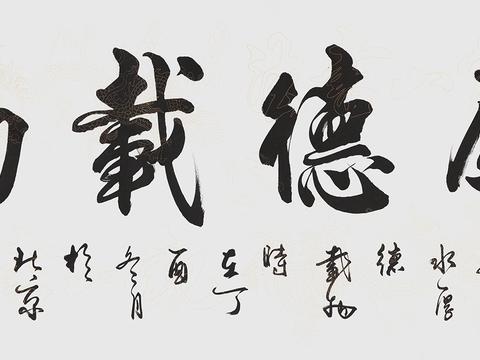 德載
水厚德載物時在丁酉冬月於北京